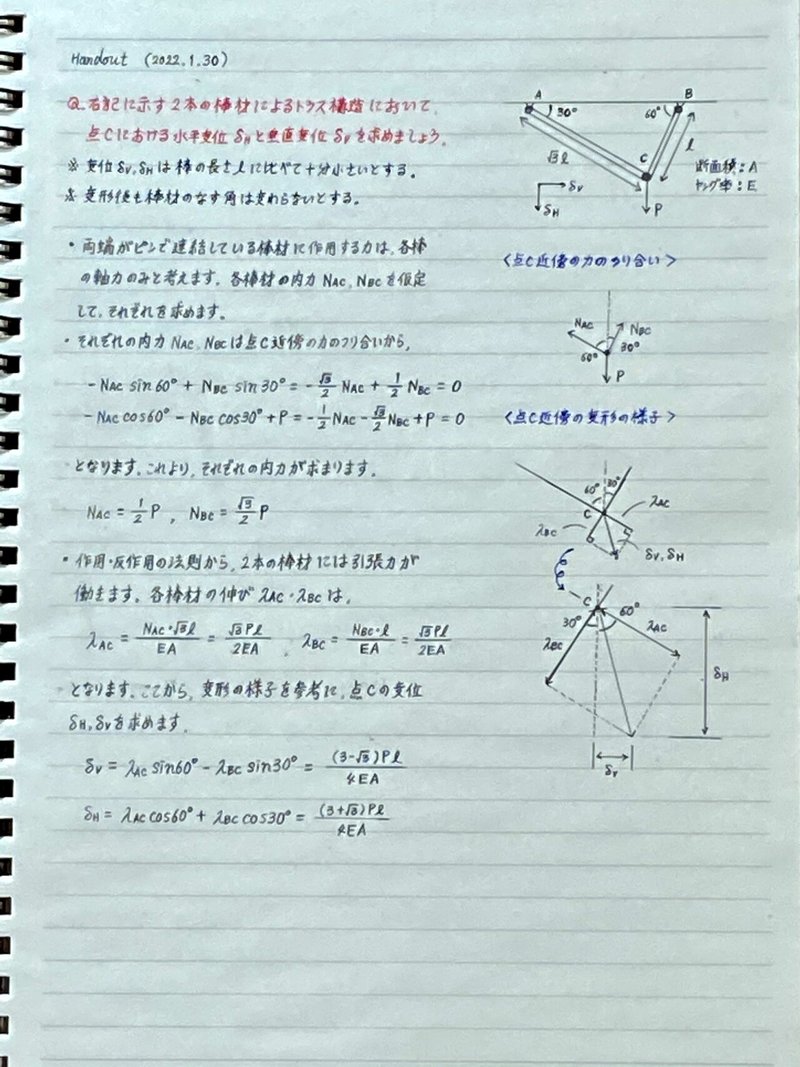 Handout (2022.1.30)
Q. 右記に示す2本の棒材によるトラス構造において、
点Cにおける水平変位 δH と垂直変位 δV を求めましょう。
※ 変位 δV, δH は棒の長さ l に比べて十分小さいとする。
※ 変形後も棒材のなす角は変わらないとする。
A
B
30°
60°
√3 l
l
C
P
δV
δH
断面積：A
ヤング率：E
・両端がピンで連結している棒材に作用する力は、各棒
の軸力のみと考えます。各棒材の内力 NAC, NBC を仮定
して、それぞれを求めます。
・それぞれの内力 NAC, NBCは点C近傍の力のつり合いから、
-NAC sin60° + NBC sin30° = -√3/2 NAC + 1/2 NBC = 0
-NAC cos60° - NBC cos30° + P = -1/2 NAC - √3/2 NBC + P = 0
となります。これより、それぞれの内力が求まります。
NAC = 1/2 P , NBC = √3/2 P
<点C近傍の力のつり合い>
NAC
NBC
60°
30°
P
<点C近傍の変形の様子>
60°
30°
C
λAC
λBC
δV, δH
・作用・反作用の法則から、2本の棒材には引張力が
働きます。各棒材の伸び λAC・λBC は、
λAC = NAC・√3l/EA = √3Pl/2EA , λBC = NBC・l/EA = √3Pl/2EA
となります。ここから、変形の様子を参考に、点Cの変位
δH, δVを求めます。
δV = λAC sin60° - λBC sin30° = (3-√3)Pl/4EA
δH = λAC cos60° + λBC cos30° = (3+√3)Pl/4EA
C
30°
60°
λBC
λAC
δH
δV